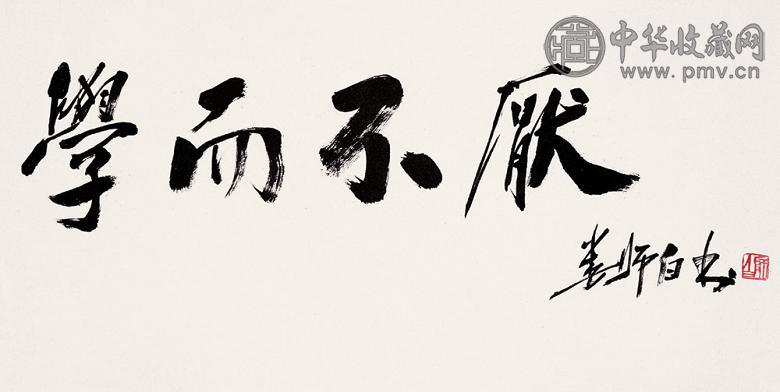 中华收藏网
www.pmv.cn
學而不厭
娄师白书